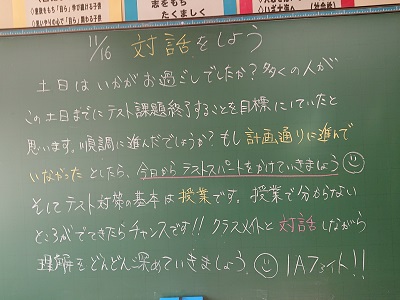 志をもち
たくましく
11/16 対話をしよう
土日はいかがお過ごしでしたか？多くの人が
この土日までにテスト課題終了することを目標にしていたと
思います。順調に進んだでしょうか？もし計画通りに進んで
いなかったとしたら、今日からテストスパートをかけていきましょう
そしてテスト対策の基本は授業です。授業で分からない
ところがでてきたらチャンスです!! クラスメイトと対話しながら
理解をどんどん深めていきましょう。 1Aファイト!!